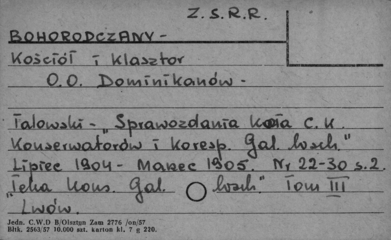 Z. S. R. R.
BOHORODCZANY -
Kościół i klasztor
O.O. Dominikanów -
Talowski - "Sprawozdania Koła C. K.
Konserwatorów i Koresp. Gal. wsch."
Lipiec 1904 - Marzec 1905. Nr 22-30 s.2.
"Teka Kons. Gal. wsch." Tom III
Lwów.
Jedn. C.W.D B/Olsztyn Zam 2776 /on/57
Bltk. 2563/57 10.000 szt. karton kl. 7 g 220.